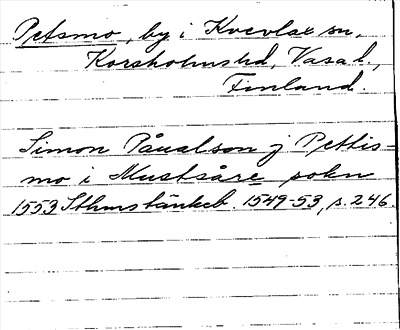 Petsmo, by i Kvevlax sn,
Korsholms hd, Vasa l.,
Finland.
Simon Påualson j Pettis=
mo i Mustsåre sokn
1553 Sthms tänkeb. 1549-53, s. 246.